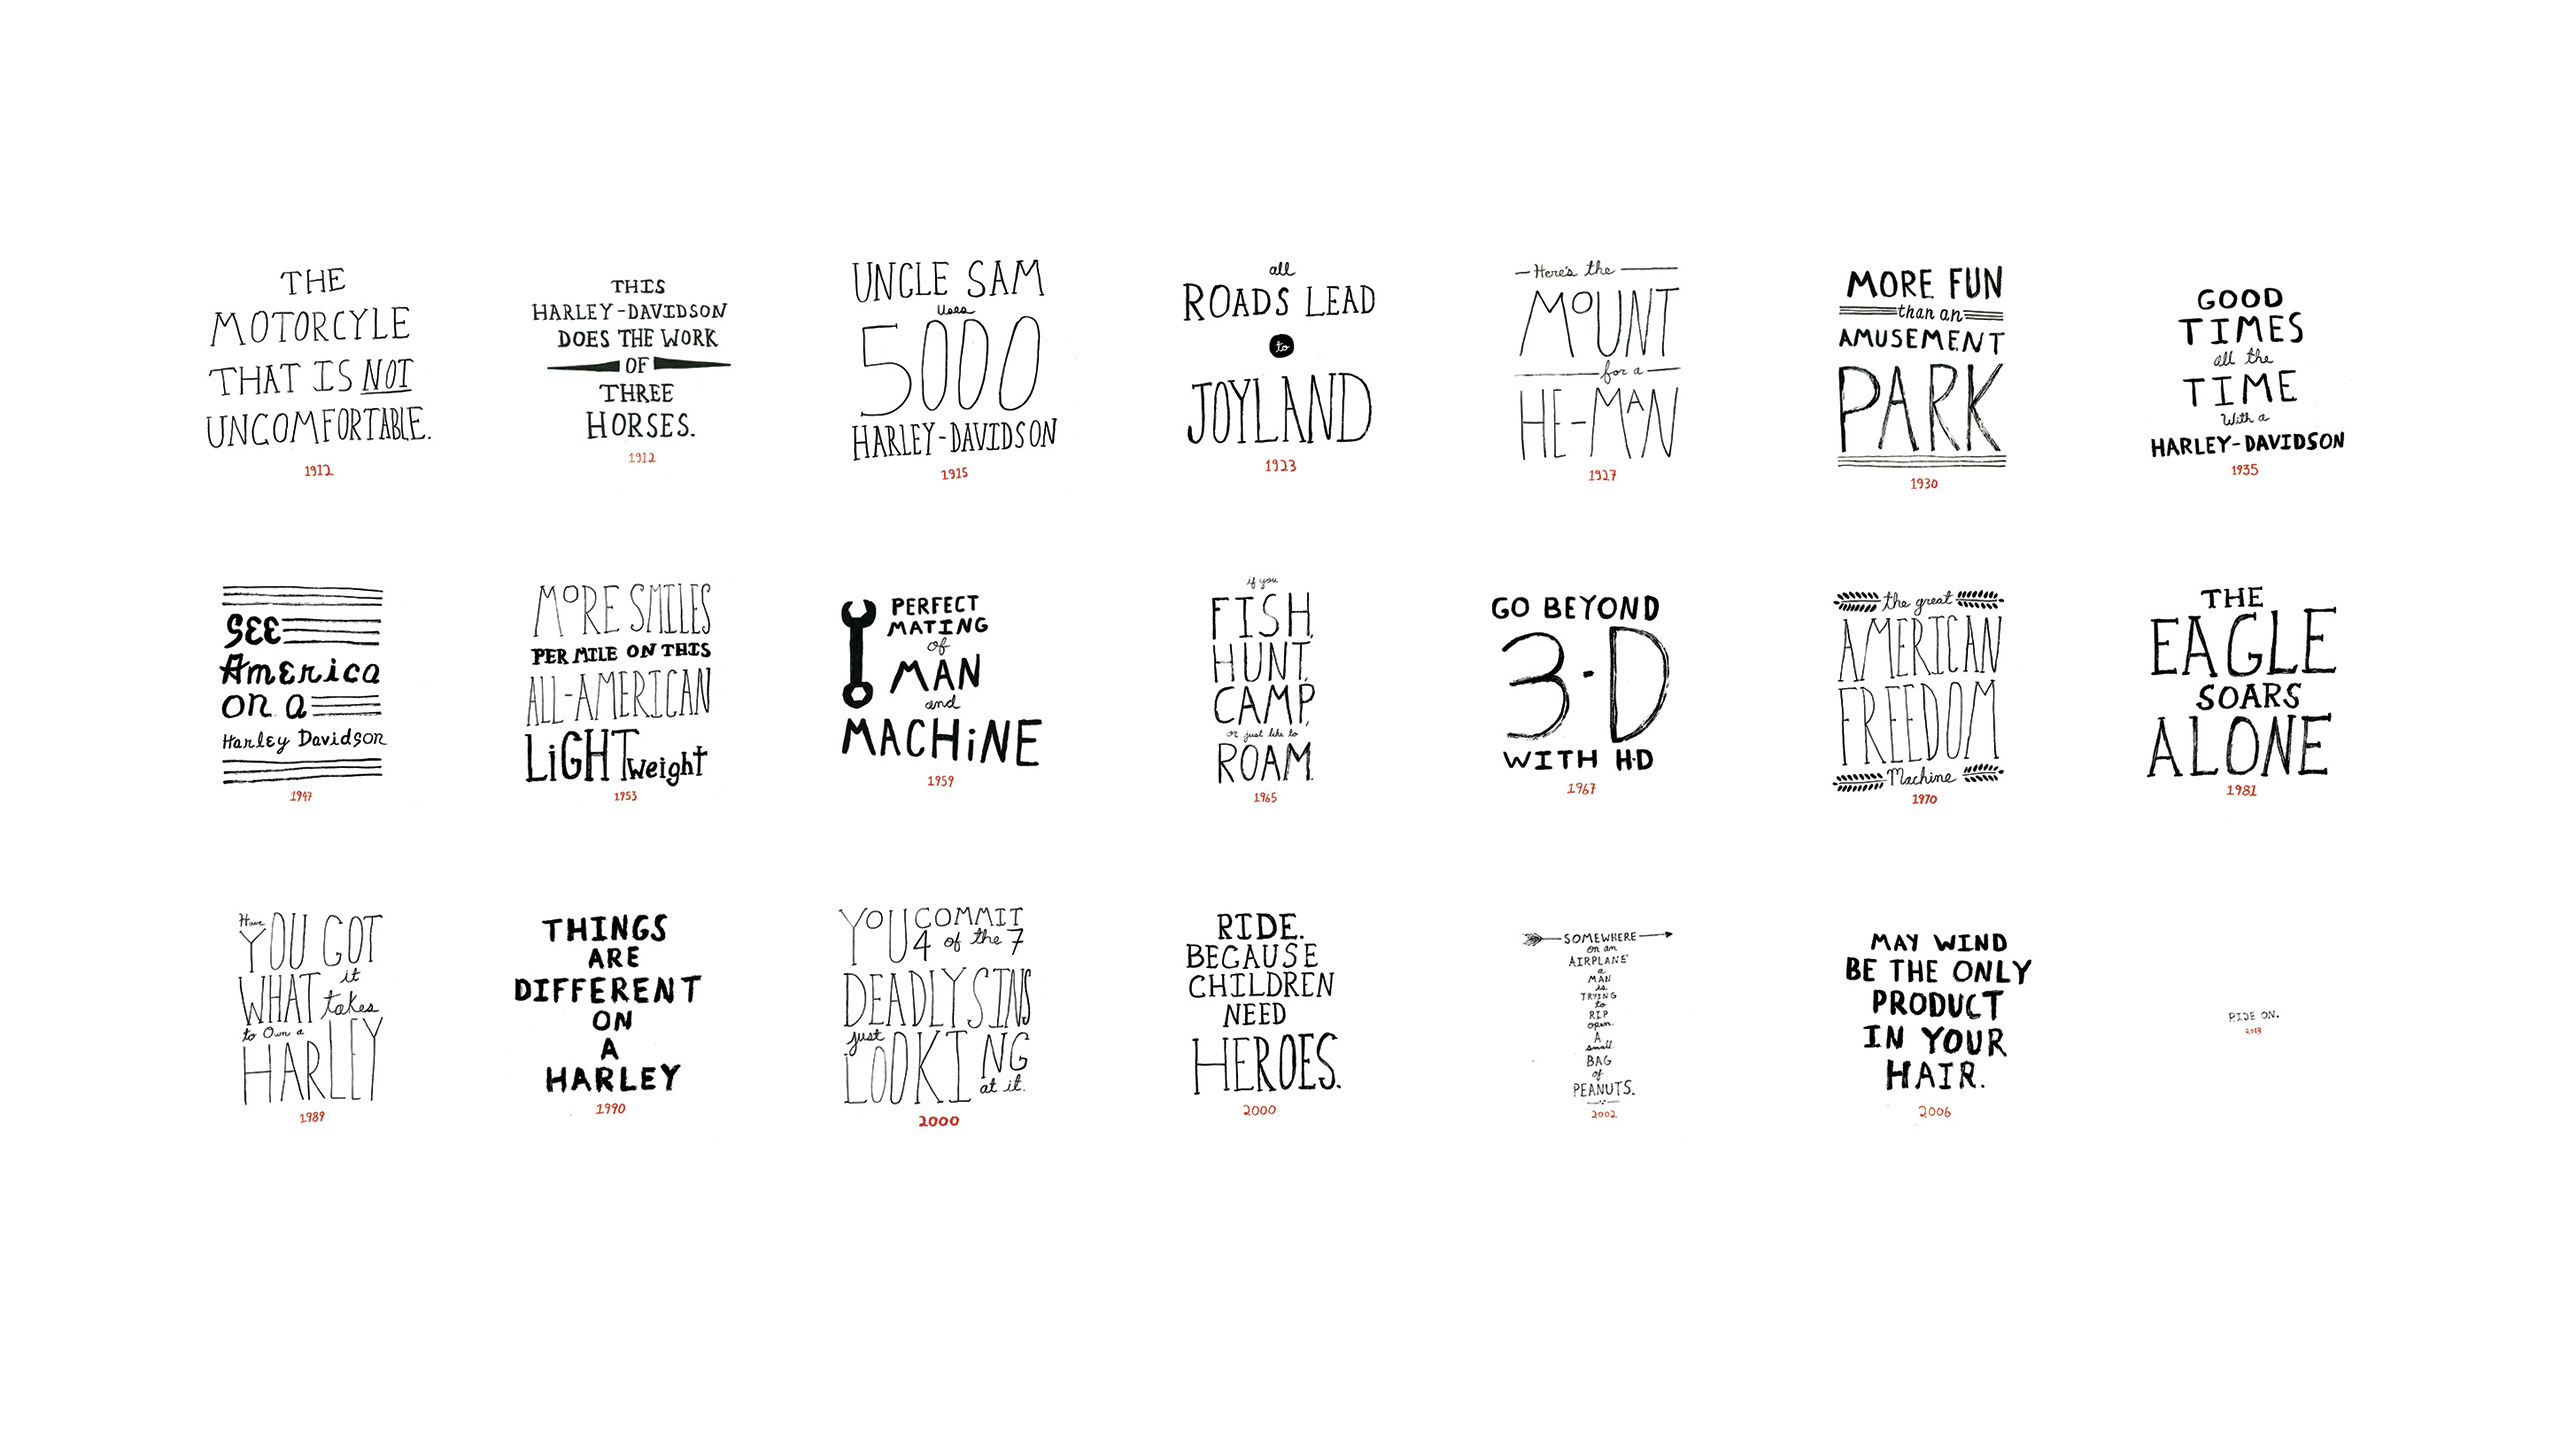 THE
MOTORCYLE
THAT IS NOT
UNCOMFORTABLE.
1912
THIS
HARLEY-DAVIDSON
DOES THE WORK
OF
THREE
HORSES.
1912
UNCLE SAM
Uses
5000
HARLEY-DAVIDSON
1915
all
ROADS LEAD
to
JOYLAND
1923
Here's the
MOUNT
for a
HE-MAN
1927
MORE FUN
than an
AMUSEMENT
PARK
1930
GOOD
TIMES
all the
TIME
With a
HARLEY-DAVIDSON
1935
SEE
America
on a
Harley Davidson
1947
MORE SMILES
PER MILE ON THIS
ALL-AMERICAN
LiGHTweight
1953
PERFECT
MATING
of
MAN
and
MACHiNE
1959
if you
FISH,
HUNT,
CAMP,
or just like to
ROAM.
1965
GO BEYOND
3-D
WITH H-D
1967
the great
AMERICAN
FREEDOM
Machine
1970
THE
EAGLE
SOARS
ALONE
1981
Have
YOU GOT
WHAT it takes
to Own a
HARLEY
1989
THINGS
ARE
DIFFERENT
ON
A
HARLEY
1990
YOU COMMIT
4 of the 7
DEADLY SINS
just
LOOKING
at it.
2000
RIDE.
BECAUSE
CHILDREN
NEED
HEROES.
2000
SOMEWHERE
on an
AIRPLANE
a
MAN
is
TRYING
to
RIP
open
A
small
BAG
of
PEANUTS.
2002
MAY WIND
BE THE ONLY
PRODUCT
IN YOUR
HAIR.
2006
RIDE ON.
2013